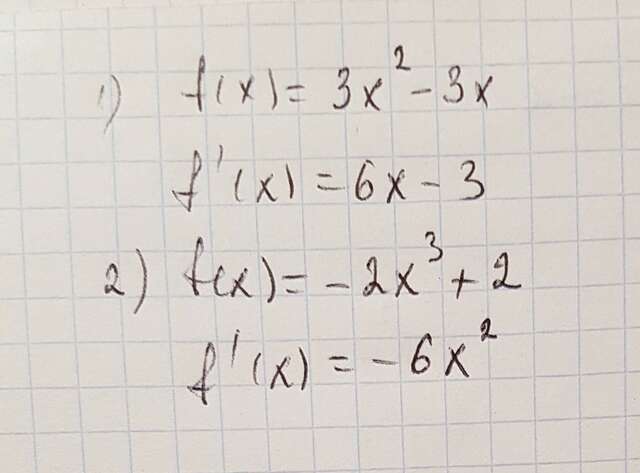 1) f(x) = 3x² - 3x
f'(x) = 6x - 3
2) f(x) = -2x³ + 2
f'(x) = -6x²